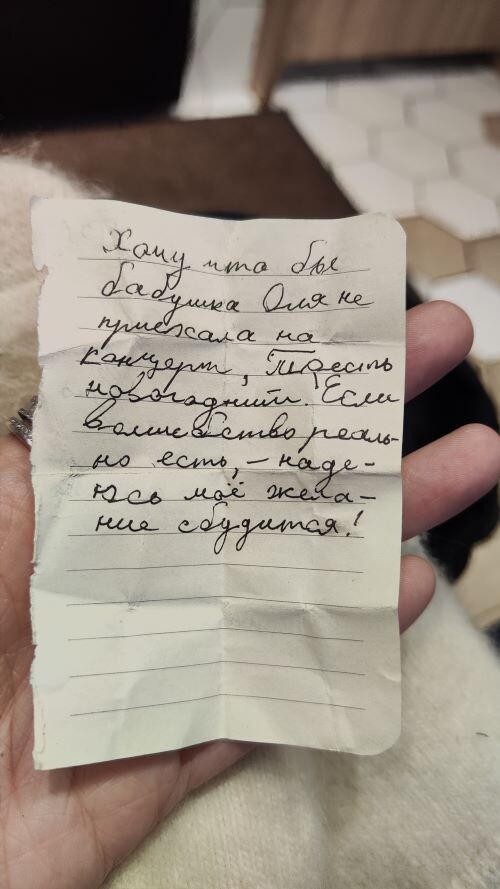 Хочу что бы
бабушка Оля не
приежала на
канцерт, Тоесть
новогодний. Если
волшебство реаль-
но есть, - наде-
юсь моё жела-
ние сбудится!